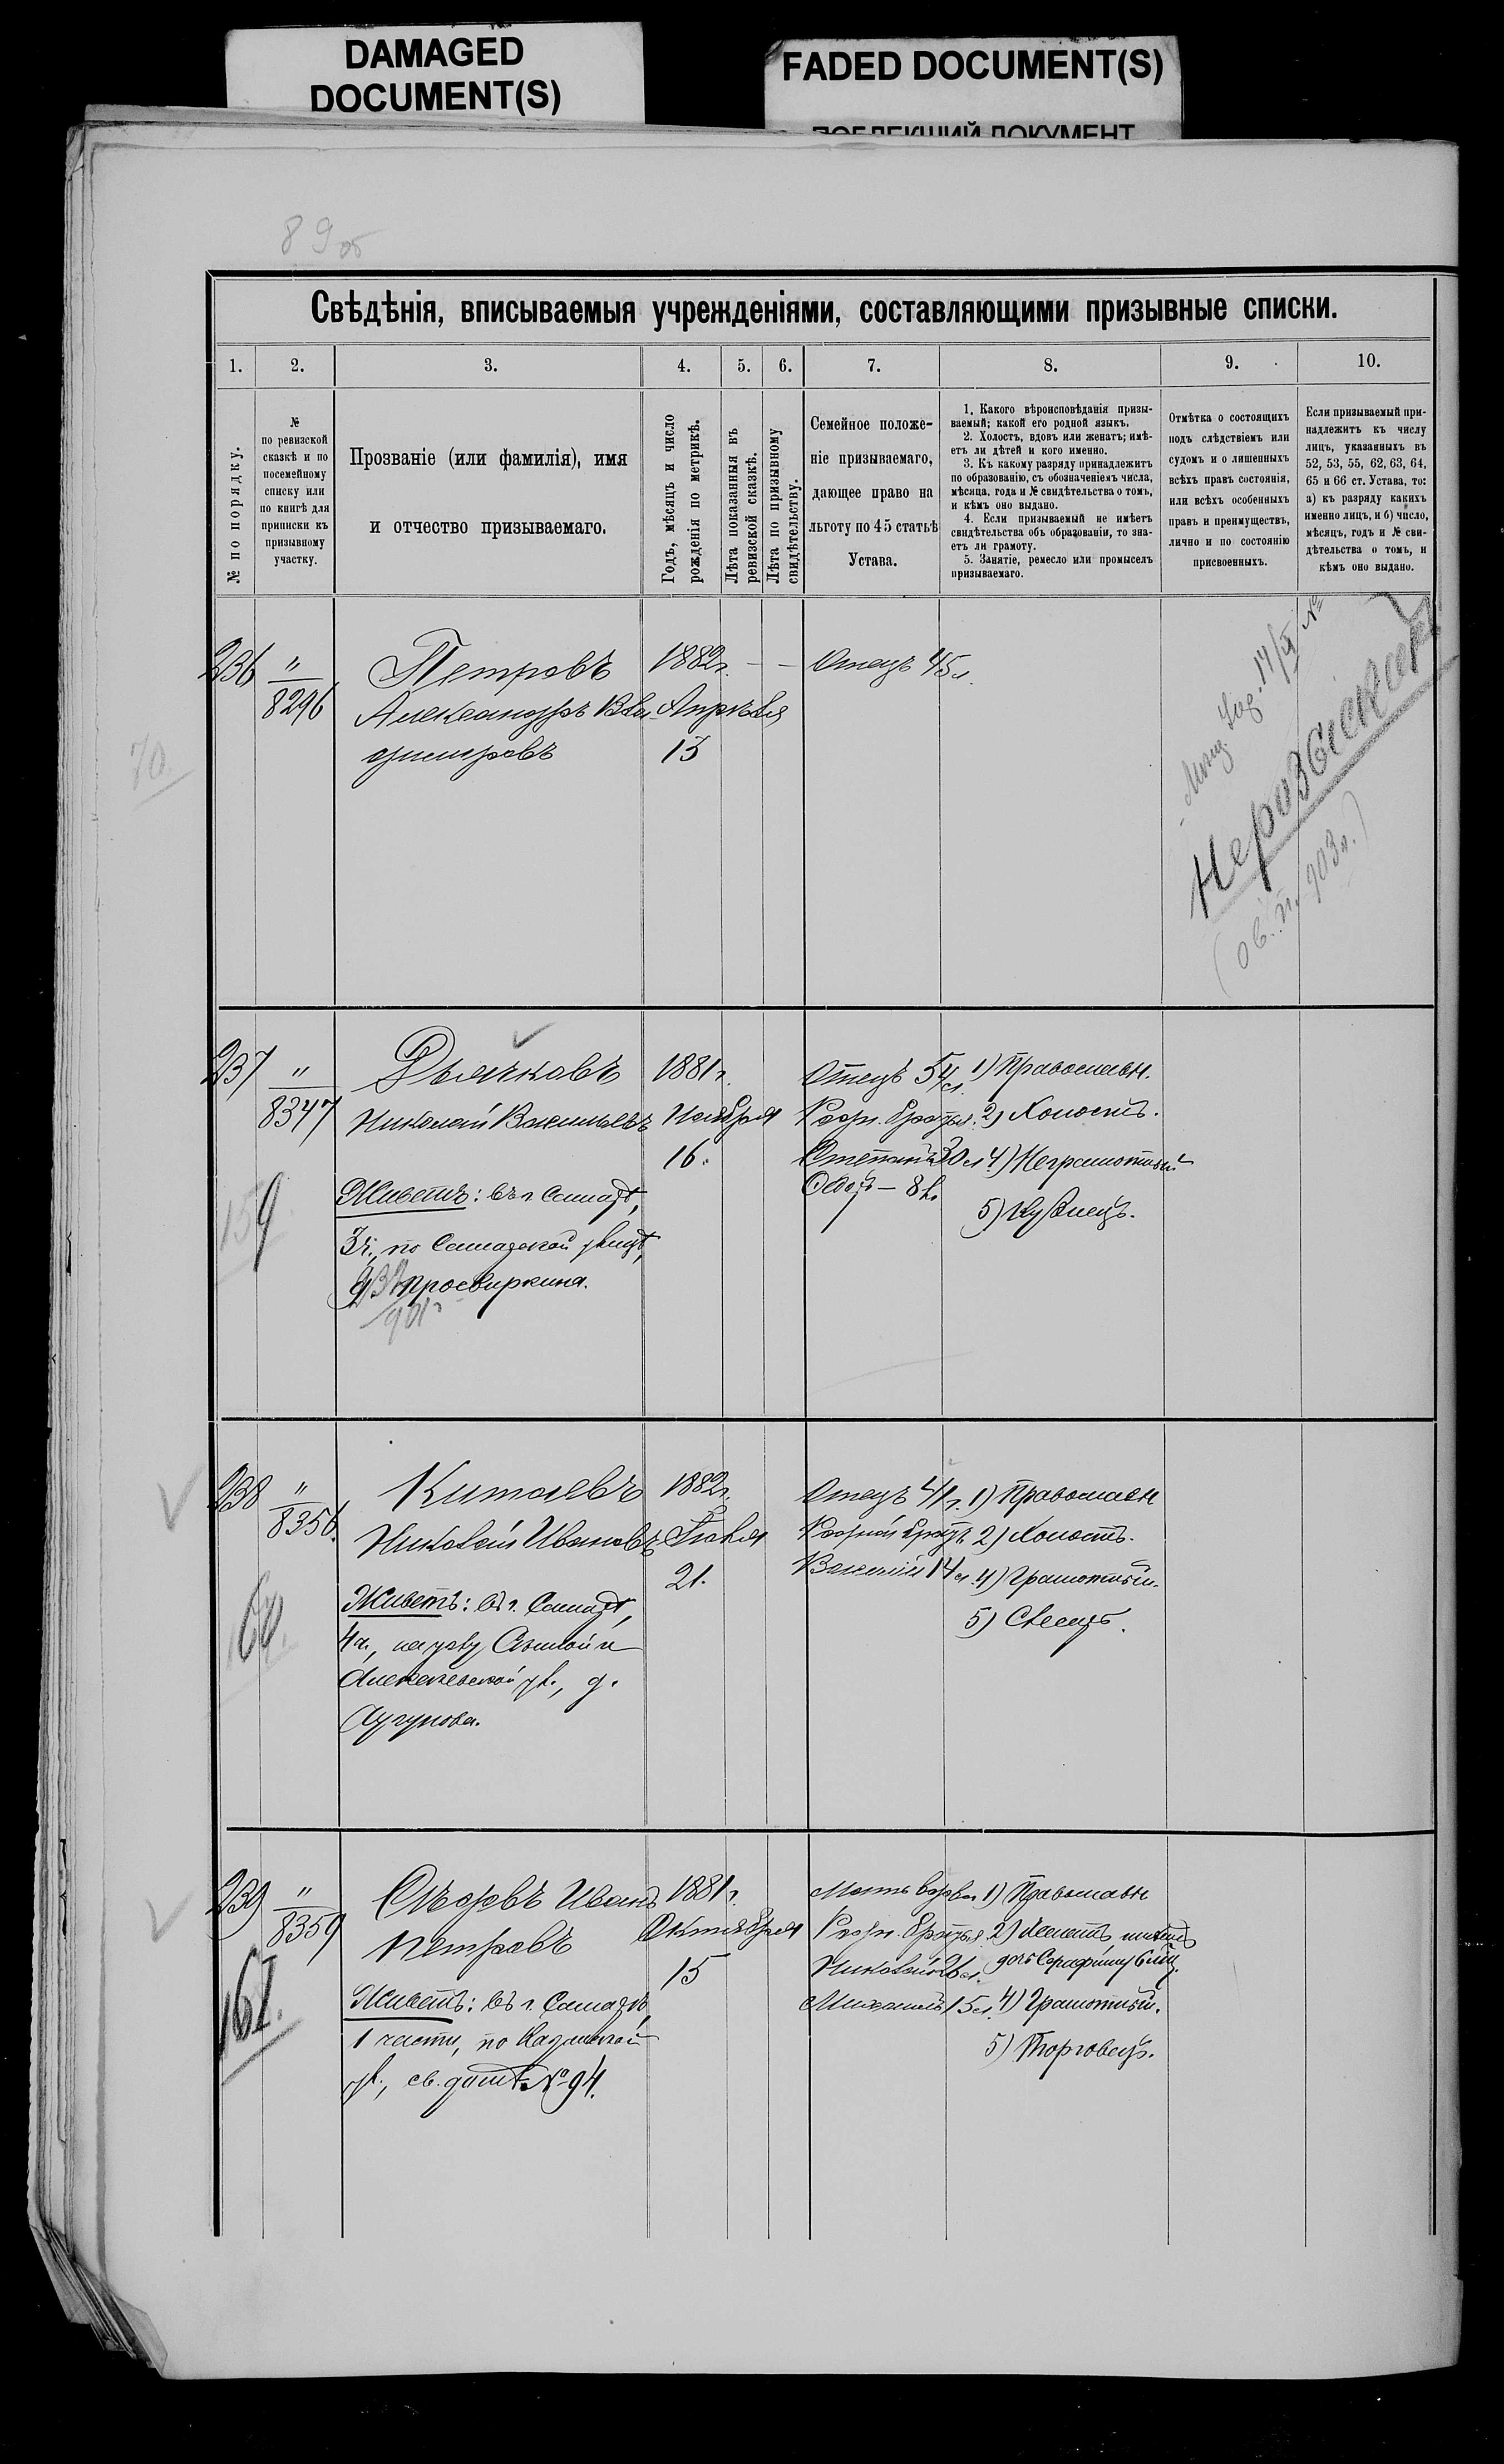 DAMAGED
DOCUMENT(S)
FADED DOCUMENT(S)
89 об
Свѣдѣнія, вписываемыя учрежденіями, составляющими призывные списки.
1.
2.
3.
4.
5.
6.
7.
8.
9.
10.
№ по порядку.
№
по ревизской
сказкѣ и по
посемейному
списку или
по книгѣ для
приписки къ
призывному
участку.
Прозваніе (или фамилія), имя
и отчество призываемаго.
Годъ, мѣсяцъ и число
рожденія по метрикѣ.
Лѣта показанныя въ
ревизской сказкѣ.
Лѣта по призывному
свидѣтельству.
Семейное положе-
ніе призываемаго,
дающее право на
льготу по 45 статьѣ
Устава.
1. Какого вѣроисповѣданія призы-
ваемый; какой его родной языкъ.
2. Холостъ, вдовъ или женатъ; имѣ-
етъ ли дѣтей и кого именно.
3. Къ какому разряду принадлежитъ
по образованію, съ обозначеніемъ числа,
мѣсяца, года и № свидѣтельства о томъ,
и кѣмъ оно выдано.
4. Если призываемый не имѣетъ
свидѣтельства объ образованіи, то зна-
етъ ли грамоту.
5. Занятіе, ремесло или промыселъ
призываемаго.
Отмѣтка о состоящихъ
подъ слѣдствіемъ или
судомъ и о лишенныхъ
всѣхъ правъ состоянія,
или всѣхъ особенныхъ
правъ и преимуществъ,
лично и по состоянію
присвоенныхъ.
Если призываемый при-
надлежитъ къ числу
лицъ, указанныхъ въ
52, 53, 55, 62, 63, 64,
65 и 66 ст. Устава, то:
а) къ разряду какихъ
именно лицъ, и б) число,
мѣсяцъ, годъ и № сви-
дѣтельства о томъ, и
кѣмъ оно выдано.
236
"
8296
Петровъ
Александръ Вла-
димировъ
1882 г.
Апрѣля
13
— —
Отецъ 45 л.
Неразыскан
70.
237
"
8347
Дьячковъ
Николай Васильевъ
Живетъ: въ г. Самарѣ,
3 ч., по Самарской улицѣ,
д. Просвиркина.
901
1881 г.
Ноября
16.
Отецъ 54 л.
Родн. братья:
Степанъ 30 л.
Ѳедоръ — 8 л.
1) Православн.
2) Холостъ.
4) Неграмотный
5) Кузнецъ.
159
238
"
8356.
Китаевъ
Николай Ивановъ
Живетъ: въ г. Самарѣ,
4 ч., на углу Сѣнной и
Алексѣевской ул., д.
1882 г.
Іюля
21.
Отецъ 41 г.
Родной братъ
Василій 14 л.
1) Православн
2) Холостъ.
4) Грамотный.
5) Слесарь.
160.
239
"
8359
Иванъ
Петровъ
Живетъ: въ г. Самарѣ,
1 части, по Казанской
ул., св. домъ № 94.
1881 г.
Октября
15
Мать вдова
Родн. братья:
Николай 26 л.
Михаилъ 15 л.
1) Православн
2) Женатъ имѣетъ
дочь Серафиму 6 мѣс.
4) Грамотный.
5) Торговецъ.
161.